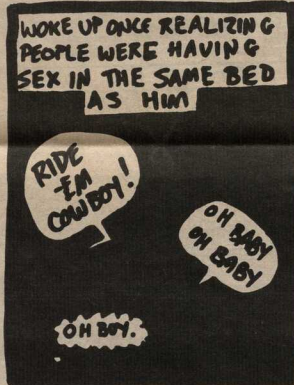 WOKE UP ONCE REALIZING
PEOPLE WERE HAVING
SEX IN THE SAME BED
AS HIM
RIDE
-EM
COWBOY!
OH BABY
OH BABY
OH BOY.